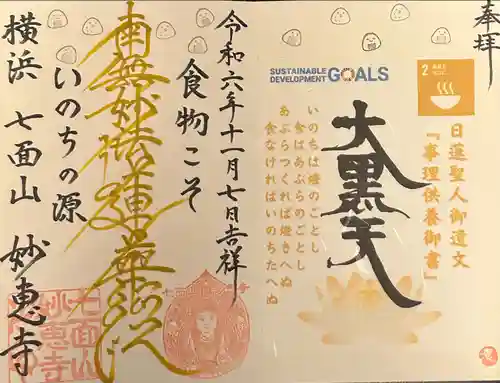 奉拝
2 飢餓を
ゼロに
SUSTAINABLE
DEVELOPMENT GOALS
日蓮聖人御遺文
『事理供養御書』
大黒天
いのちは燈のごとし
食はあぶらのごとし
あぶらつくれば燈きへぬ
食なければいのちたへぬ
令和六年十一月七日吉祥
食物こそ
南無妙法蓮華経
いのちの源
横浜 七面山 妙恵寺
七面山
妙恵寺